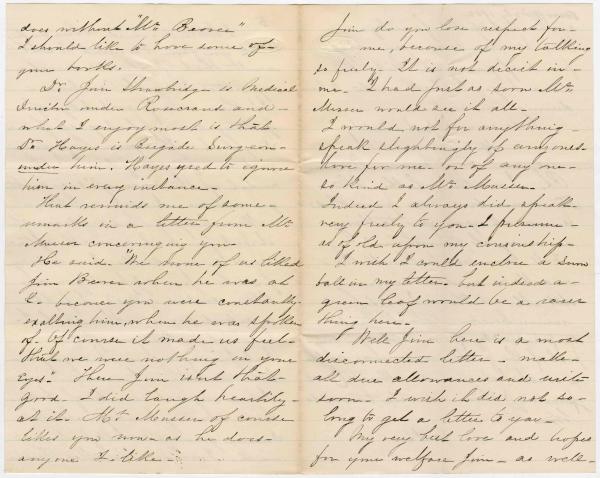 does without "Mr. Beaver"
I should like to have some of
your books.
Dr. Jim Strawbridge is Medical
Director under Rosecrans and
what I enjoy most is that
Dr. Hayes is Brigade Surgeon
under him. Hayes used to ignore
him in every instance.
That reminds me of some
remarks in a letter from Mr.
Musser concerning you
He said. "We none of us liked
Jim Beaver when he was at
C. because you were constantly
exalting him, when he was spoken
of. Of course it made us feel
that we were nothing in your
Eyes". There Jim isnt that
good. I did laugh heartily
at it. Mr. Musser of course
likes you now as he does
anyone I like
Jim do you lose respect for
me, because of my talking
so freely. It is not deceit in
me. I had just as soon Mr.
Musser would see it all.
I would not for anything
speak slightingly of anyones
love for me or of any one
so kind as Mr. Musser.
Indeed I always did speak
very freely to you. I presume
as of old upon my cousinship.
I wish I could enclose a snow
ball in my letter. but indeed a
green leaf would be a rarer
thing here.
Well Jim here is a most
disconnected letter. make
all due allowances and write
soon. I wish it did not so
long to get a letter to you.
My very best love and hopes
for your welfare Jim. as well